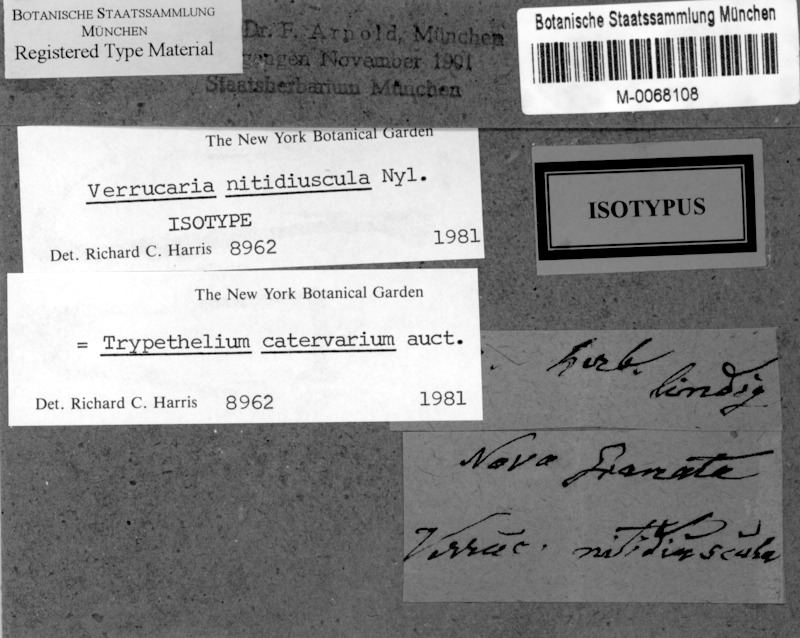 BOTANISCHE STAATSSAMMLUNG
MÜNCHEN
Registered Type Material
Dr. F. Arnold, München
gangen November 1901
Staatsherbarium München
Botanische Staatssammlung München
M-0068108
The New York Botanical Garden
Verrucaria nitidiuscula Nyl.
ISOTYPE
Det. Richard C. Harris 8962 1981
ISOTYPUS
The New York Botanical Garden
= Trypethelium catervarium auct.
Det. Richard C. Harris 8962 1981
herb.
Lindig
Nova Granata
Verruc. nitidiuscula